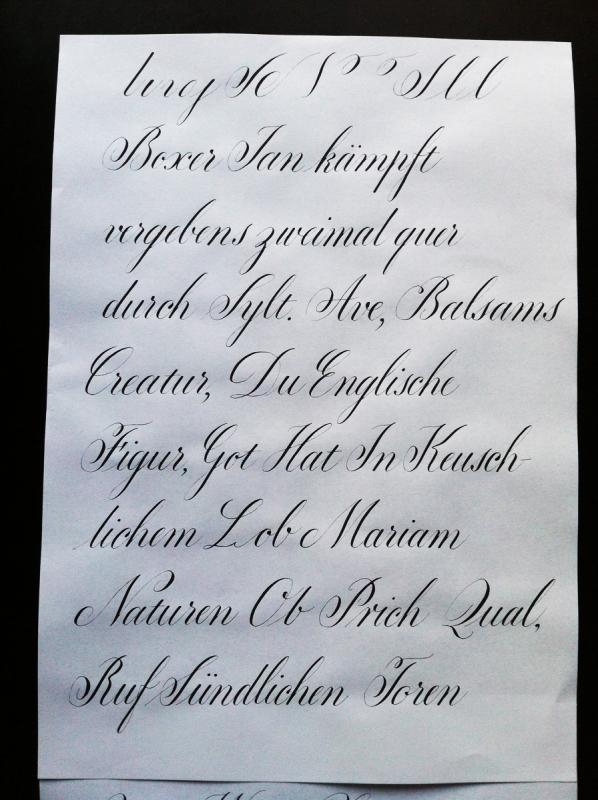 Boxer Jan kämpft
vergebens zweimal quer
durch Sylt. Ave, Balsams
Creatur, Du Englische
Figur, Got Hat In Keusch-
lichem Lob Mariam
Naturen Ob Prich Qual,
Ruf Sündlichen Toren